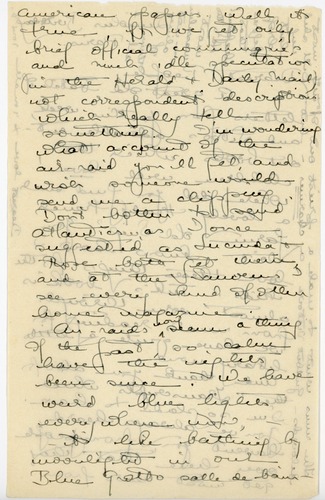 American papers. Well it's
true, for we get only
brief official communiques
and much idle speculation
(in the Herald & Daily Mail)
not correspondents descriptions
which really tell
something. I'm wondering
what account of the
air-raid you'll get and
wish someone would
send me a clipping.
Don't bother to send
Atlantics as I once
suggested as Lucinda &
Hope both get theirs
and at the
see every kind of other
home magazine.
Air raids now seem a thing
of the past so calm
have the nights
been since. We have
weird blue lights
everywhere now,
It's like bathing by
moonlight in our
Blue Grotto salle de bain